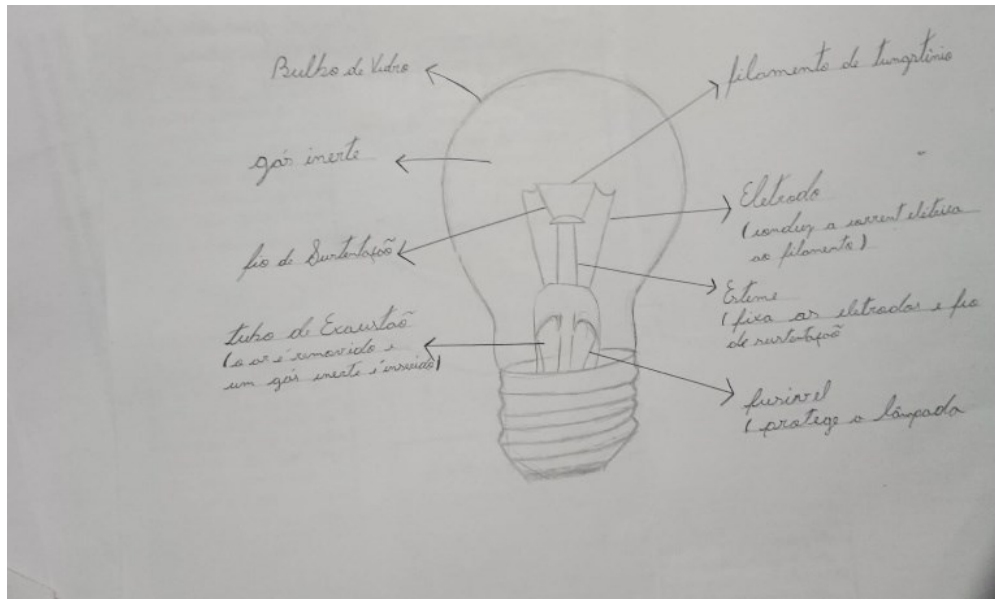 Bulbo de Vidro
gás inerte
fio de Sustentação
tubo de Exaustão
(o ar é removido e
um gás inerte é inserido)
filamento de tungstênio
Eletrodo
(conduz a corrent elétrica
ao filamento)
Esteme
(fixa os eletrodos e fio
de sustentação
fusível
(protege a lâmpada